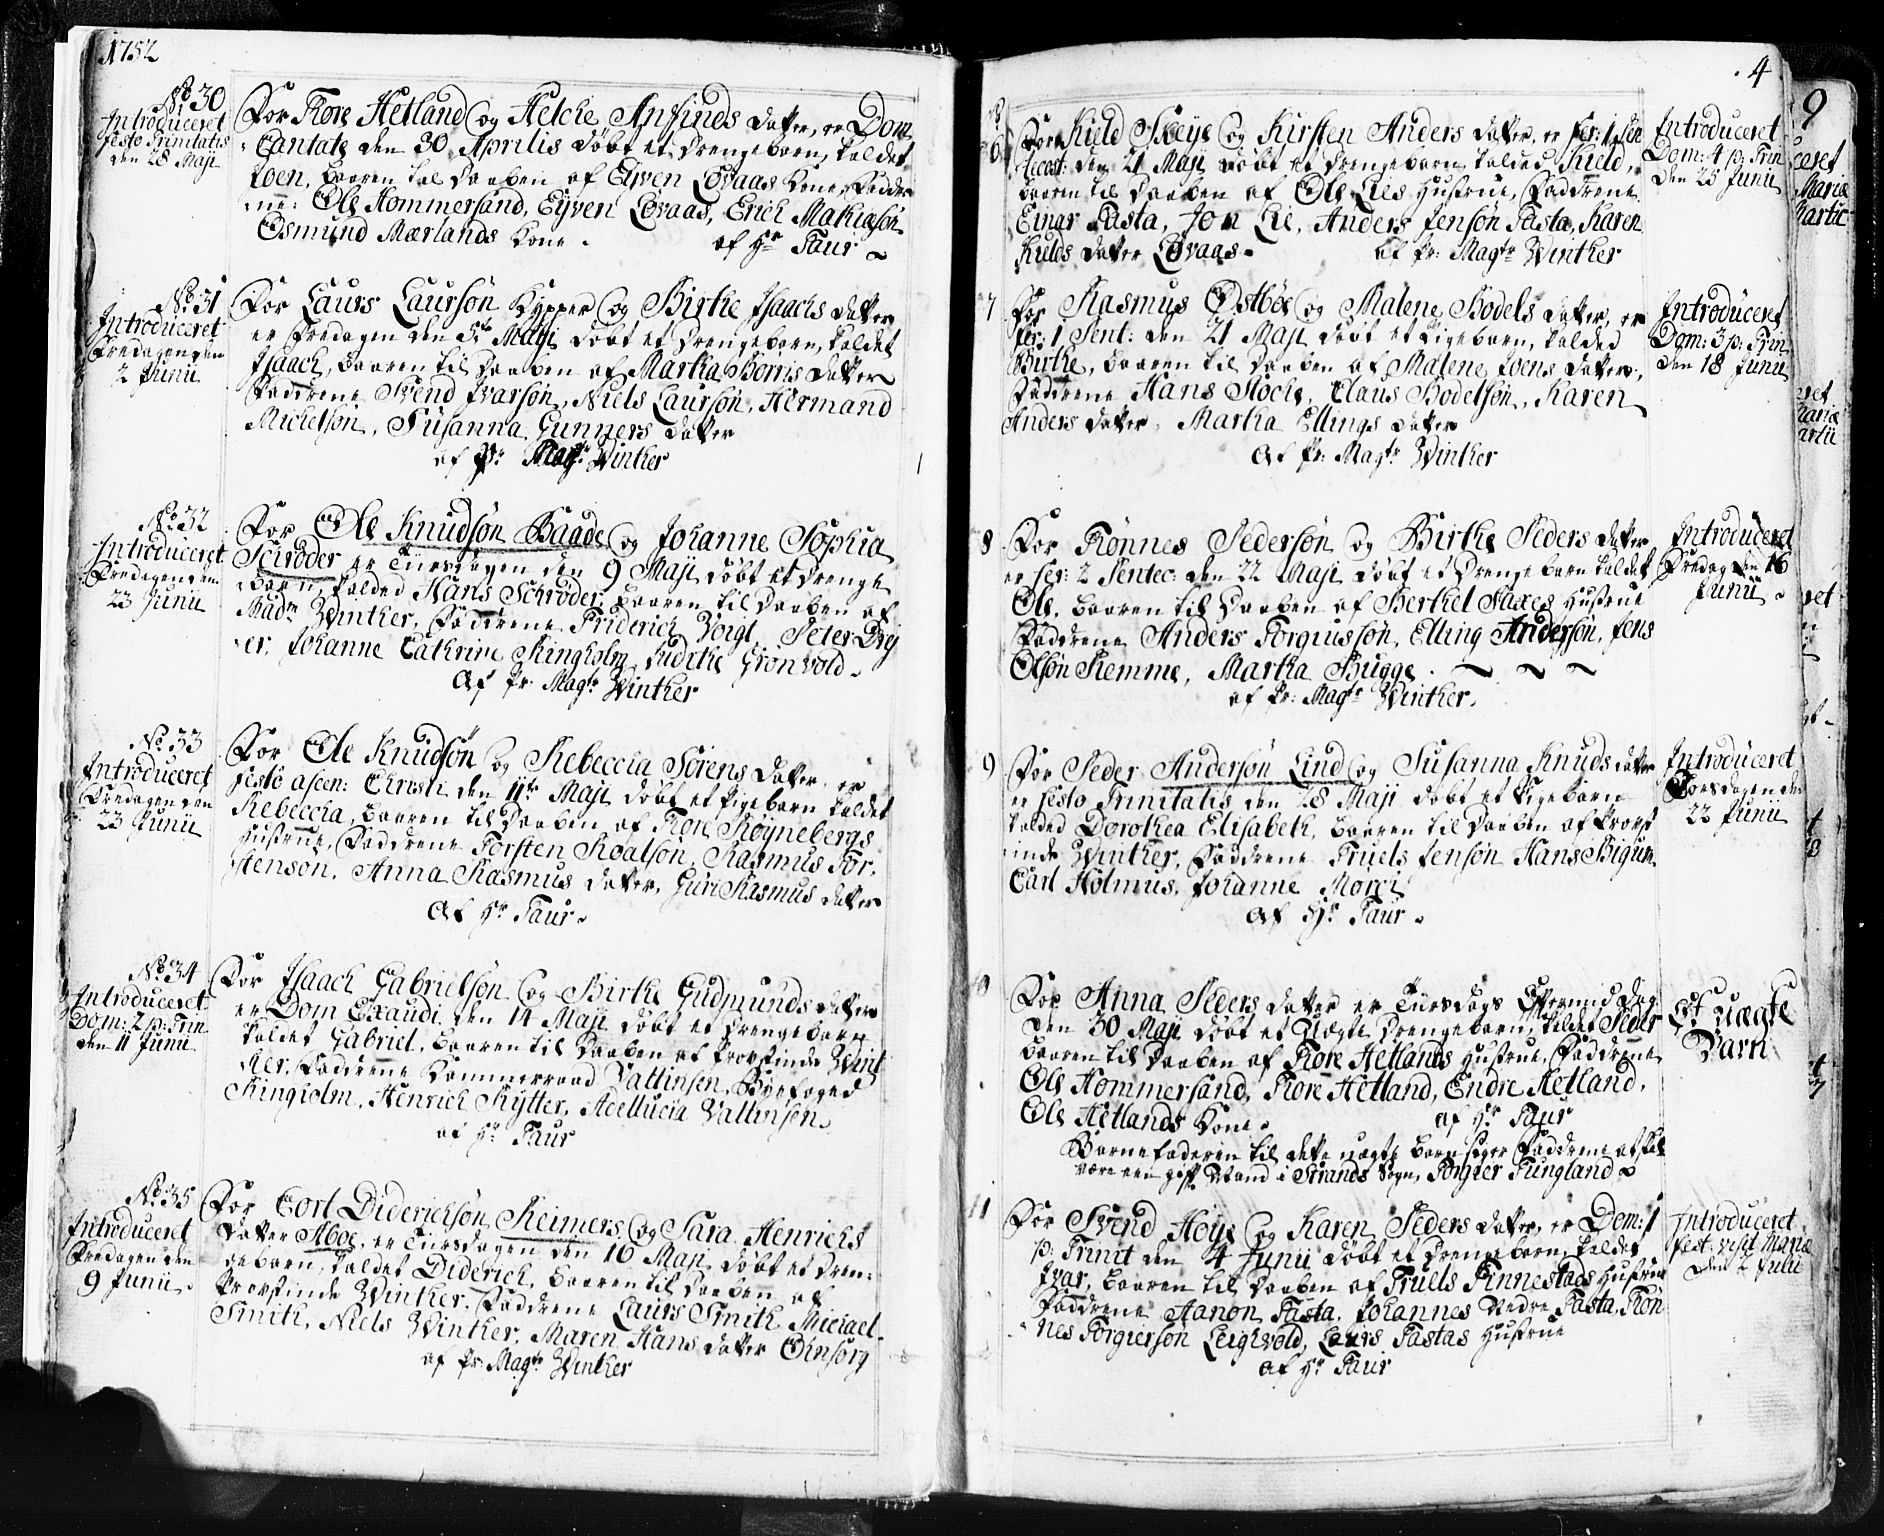 1752
No. 30
Introduceret
festo Trinitatis
den 28 Maji
For Tore Hetland og Helche Ansinds datter, er Dom
Cantate den 30 Aprilis døbt et drengebarn, kaldet
Joen, baaren til daaben af Eyven Løvaas kone, Faddre
ne: Ole Hommersand, Eyven Løvaas, Erich Mathiasøn
Osmund Mærlands kone. af Hr Faur
No. 31
Introduceret
Fredagen den
2 Junii
For Laurs Laursøn Kypper og Birthe Isaachs datter
er Fredagen den 5te Maji døbt et drengebarn, kaldet
Isaach, baaren til daaben af Martha Børris datter
Faddrene Svend Ivarsøn, Niels Laursøn, Hermand
Michelsøn, Susanna Gunners datter
af Pr Magr Winther
No. 32
Introduceret
Fredagen den
23 Junii
For Ole Knudsøn Baade og Johanne Sophia
Schrøder er Tiirsdagen den 9 Maji døbt et drenge
barn, kalded Hans Schrøder, baaren til daaben af
Madm Winther, Faddrene Friderich Voigt, Peter Drej
er, Johanne Cathrine Ringholm, Judithe Grønvold.
Af Pr: Magr Winther
No. 33
Introduceret
Fredagen den
23 Junii
For Ole Knudsøn og Rebeccia Sørens datter, er
festo ascen: Christi den 11te Maji døbt et pigebarn kaldet
Rebeccia, baaren til daaben af Tore Røynebergs
hustrue, Faddrene Torsten Roalsøn, Rasmus Tor,
stenson, Anna Rasmus datter, Guri Rasmus datter
Af Hr Faur.
No. 34
Introduceret
Dom: 2 p: Trin
den 11 Junii
For Isaach Gabrielsøn og Birthe Gudmunds datter
er Dom Exaudi, den 14 Maji døbt et drengebarn
kaldet Gabriel, baaren til daaben af Provstinde Wint
her, Faddrene Kammerraad Valtinsen, Byefoged
Ringholm, Henrich Rytter, Adellucia Valtinsen.
af Hr Faur
No. 35
Introduceret
Fredagen den
9 Junii.
For Cort Diderichsøn Reimers og Sara Henrichs
datter Aboe, er Tiirsdagen den 16 Maji døbt et dren:
gebarn, kaldet Diderich, baaren til daaben af
Provstinde Winther, Faddrene Laurs Smith, Michael
Smith, Niels Winther, Maren Hans datter Ginsørg
af Pr: Magr Winther
4
6
For Kield Skeye og Kirsten Anders datter, er fer: 1 Pen
tecost: den 21 Maji døbt et drengebarn kalded Kield,
baaren til daaben af Ole Lies hustrue, Faddrene
Einar Tasta, Jon Lie, Anders Jensøn Tasta, Karen
Kields datter Løvaas. af Pr: Magr Winther
Introduceret
Dom: 4 p: Trin
den 25 Junii
7
For Rasmus Østbøe og Malene Bodels datter, er
fer: 1 Pent: den 21 Maji døbt et Pigebarn, kalded
Birthe, baaren til daaben af Malene Joens datter,
Faddrene Hans Stoche, Claus Bodelsøn, Karen
Anders datter, Martha Ellings datter
Af Pr: Magr Winther
Introduceret
Dom: 3 p: Trin
den 18 Junii
8
For Tønnes Pedersøn og Birthe Peders datter
er fer: 2 Pentec: den 22 Maji døbt et drenge barn kaldet
Ole, baaren til daaben af Berthel Saxes hustrue
Faddrene Anders Torgiussøn, Elling Andersøn, Jens
Olsøn Remme, Martha Bugge.
af Pr: Magr Winther.
Introduceret
Fredag den 16
Junii
9
For Peder Andersøn Lind og Susanna Knuds datter
er festo Trinitatis den 28 Maji døbt et Pigebarn
kalded Dorothea Elisabeth, baaren til daaben af Provst
inde Winther, Faddrene Truels Jensøn Hans Bigum
Carl Holmus, Johanne Morch
Af Hr Faur.
Introduceret
Torsdagen den
22 Junii
For Anna Peders datter er Tiirsdags Eftermid Dag
den 30 Maji døbt et Uægte drengebarn, kaldet Peder
baaren til daaben af Tore Hetlands hustrue, Faddrene
Ole Hommersand, Tore Hetland, Endre Hetland,
Ole Hetlands kone. af Hr Faur
Barnefaderen til dette uægte barn siger Faddrene at skal
være een gift Mand i Strands Sogn, Torgier Tungland
Et uægte
Barn
11
For Svend Høye og Karen Peders datter, er Dom: 1
p: Trinit den 4 Junii døbt et drengebarn, kaldet
Ivar, baaren til daaben af Truels Finnestads hustrue
Faddrene Aanon Tasta, Johannes Nedre Tasta, Tøn
nes Torgiersøn Leighvold, Laurs Tastas hustrue
af Hr Faur
Introduceret
fest: visit Mariæ
den 2 Julii
9